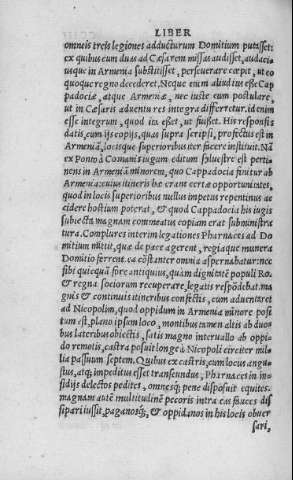 LIBER
omneis treis legiones adducturum Domitium putasset:
ex quibus cum duas ad Cæsarem missas audisset, audacius
usque in Armenia substitisset, perseuerare cœpit, ut eo
quoque regno decederet. Neque enim aliud ius esse Cap
padociæ, atque Armeniæ, nec iuste eum postulare,
ut in Cæsaris aduentu res integra differretur. id enim
esse integrum, quod ita esset, ut fuisset. His responsis
datis, cum ijs copijs, quas supra scripsi, profectus est in
Armeniā, locisque superioribus iter facere instituit. Nā
ex Ponto à Comanis iugum editum syluestre est perti
nens in Armeniā minorem, quo Cappadocia finitur ab
Armenia: cuius itineris hæ erant certæ opportunitates,
quod in locis superioribus nullus impetus repentinus ac
cidere hostium poterat, & quod Cappadocia his iugis
subiecta magnam commeatus copiam erat subministra
tura. Complures interim legationes Pharnaces ad Do
mitium mittit, quæ de pace agerent, regiaque munera
Domitio ferrent. ea cōstanter omnia aspernabatur: nec
sibi quicquā fore antiquius, quàm dignitatē populi Ro.
& regna sociorum recuperare, legatis respōdebat. ma
gnis & continuis itineribus confectis, cum aduentaret
ad Nicopolim, quod oppidum in Armenia minore posi
tum est, plano ipsum loco, montibus tamen altis ab duo
bus lateribus obiectis, satis magno interuallo ab oppi
do remotis, castra posuit longe à Nicopoli circiter mil
lia passuum septem. Quibus ex castris, cum locus angu
stus, atq; impeditus esset transeundus, Pharnaces in in-
sidijs delectos pedites, omnesq; pene disposuit equites.
magnam autē multitudinē pecoris intra eas fauces dis
sipari iussit, paganosq;, & oppidanos in his locis obuer
sari,